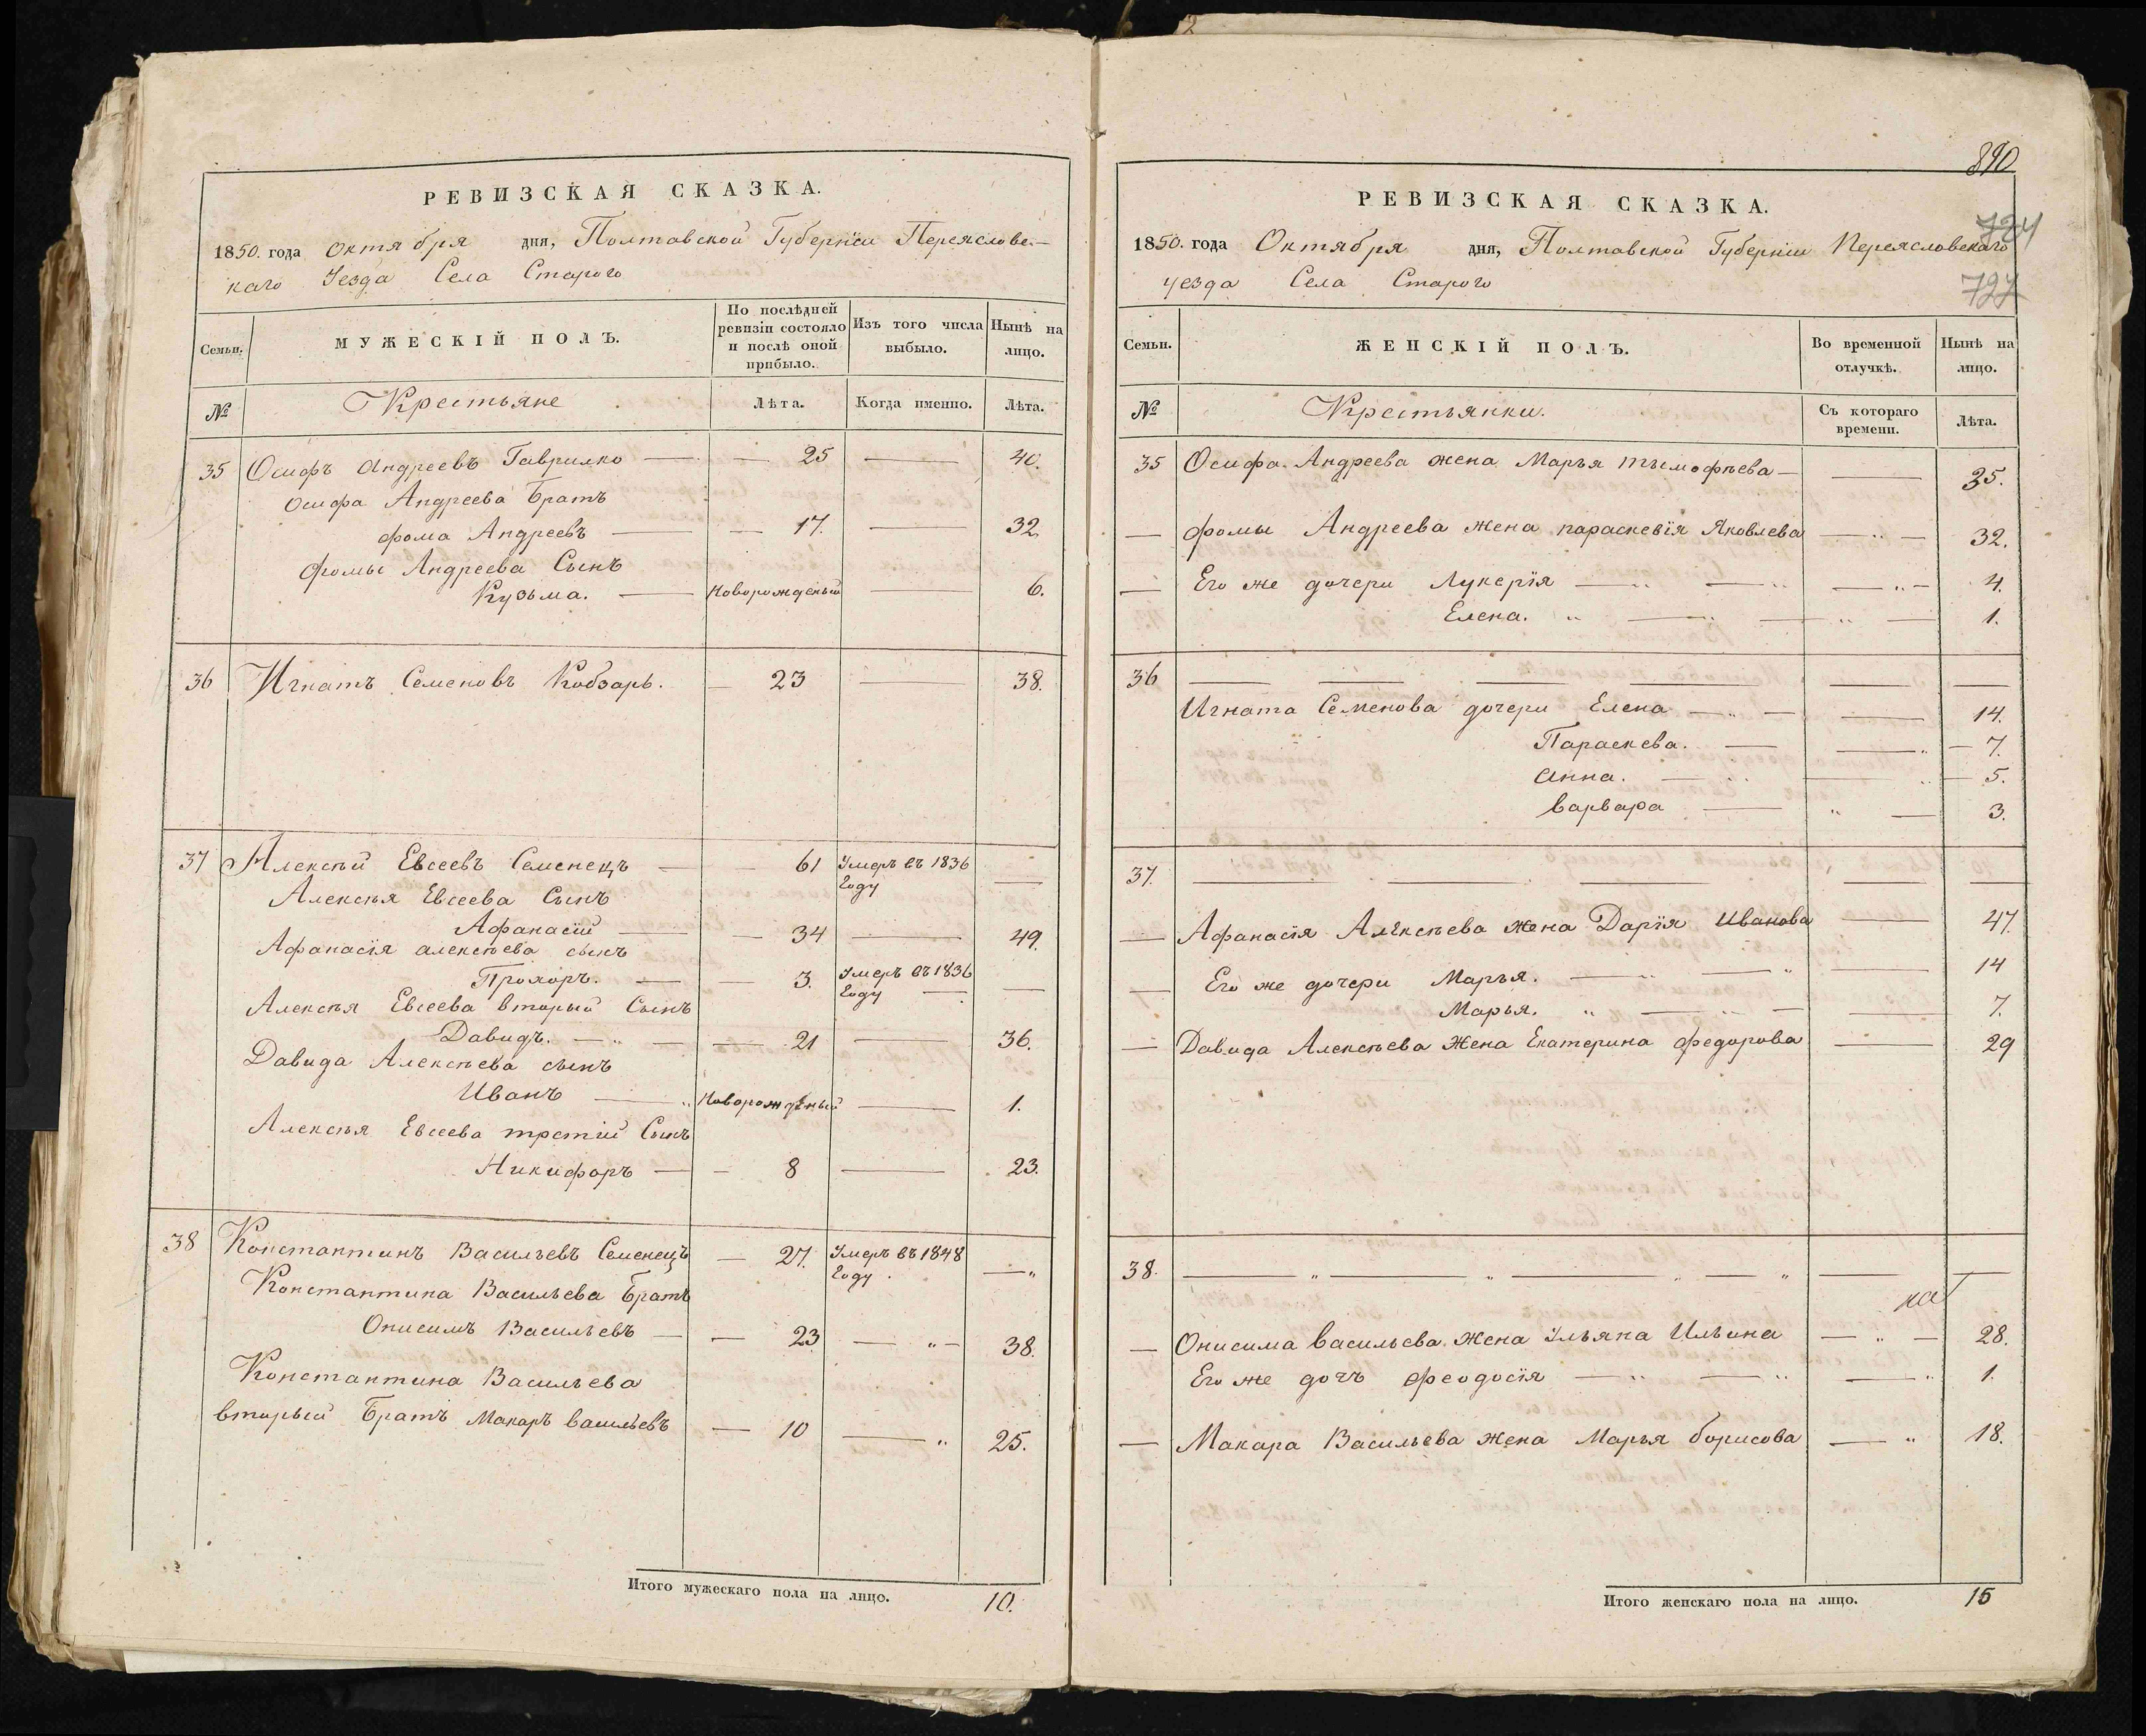 РЕВИЗСКАЯ СКАЗКА.
1850. года октября дня, Полтавской Губерніи Переяслов-
каго Уезда Села Старого
Семьи.
МУЖЕСКІЙ ПОЛЪ.
По послѣдней ревизіи состояло и послѣ оной прибыло.
Изъ того числа выбыло.
Нынѣ на лицо.
№
Крестьяне
Лѣта.
Когда именно.
Лѣта.
35 Осифъ Андреевъ Гаврилко — — 25 — 40.
Осифа Андреева Братъ
Фома Андреевъ — — 17. — 32.
Фомы Андреева Сынъ
Кузьма. — Новорожденый — 6.
36 Игнатъ Семеновъ Кобзарь. — 23 — 38.
37 Алексѣй Евсеевъ Семенецъ — — 61 Умеръ въ 1836
Году —
Алексѣя Евсеева Сынъ
Афанасій — — 34 — 49.
Афанасія алексѣева сынъ
Прохоръ. — — 3. Умеръ въ 1836
Году — —
Алексѣя Евсеева вторый Сынъ
Давидъ. — „ — — 21 — 36.
Давида Алексѣева сынъ
Иванъ — „ Новорожденый — 1.
Алексѣя Евсеева третій Сынъ
Никифоръ — — 8 — 23.
38 Константинъ Васильевъ Семенецъ — 27. Умеръ въ 1848
Году. — „
Константина Васильева Братъ
Онисимъ Васильевъ — — 23 — „ — 38.
Константина Васильева
вторый Братъ Макаръ васильевъ — 10 — „ 25.
Итого мужескаго пола на лицо. 10.
890
724
727
РЕВИЗСКАЯ СКАЗКА.
1850. года Октября дня, Полтавской Губерніи Переясловскаго
уезда Села Старого
Семьи.
ЖЕНСКІЙ ПОЛЪ.
Во временной отлучкѣ.
Нынѣ на лицо.
№
Крестьянки.
Съ котораго времени.
Лѣта.
35 Осифа Андреева жена Марья тымофѣева — — 35.
— Фомы Андреева жена параскевія Яковлева — „ — 32.
— Его же дочери Лукерія — „ — „ — „ — 4.
Елена. „ — „ — „ — 1.
36 — — — — — —
Игната Семенова дочери Елена — „ — — 14.
Параскева. — — „ — 7.
Анна. — „ — „ — 5.
Варвара — „ — 3.
37. — — — — —
— Афанасія Алексѣева жена Дарія Иванова — 47.
— Его же дочери Марья. — „ — „ — 14
Марья. „ — „ — — 7.
— Давида Алексѣева жена Екатерина Федорова — 29
38. — „ — „ — „ — „ — —
— Онисима васильева жена Ульяна Ильина — „ — 28.
Его же дочъ Феодосія — „ — „ — „ 1.
— Макара Васильева жена Марья борисова — „ 18.
Итого женскаго пола на лицо. 15